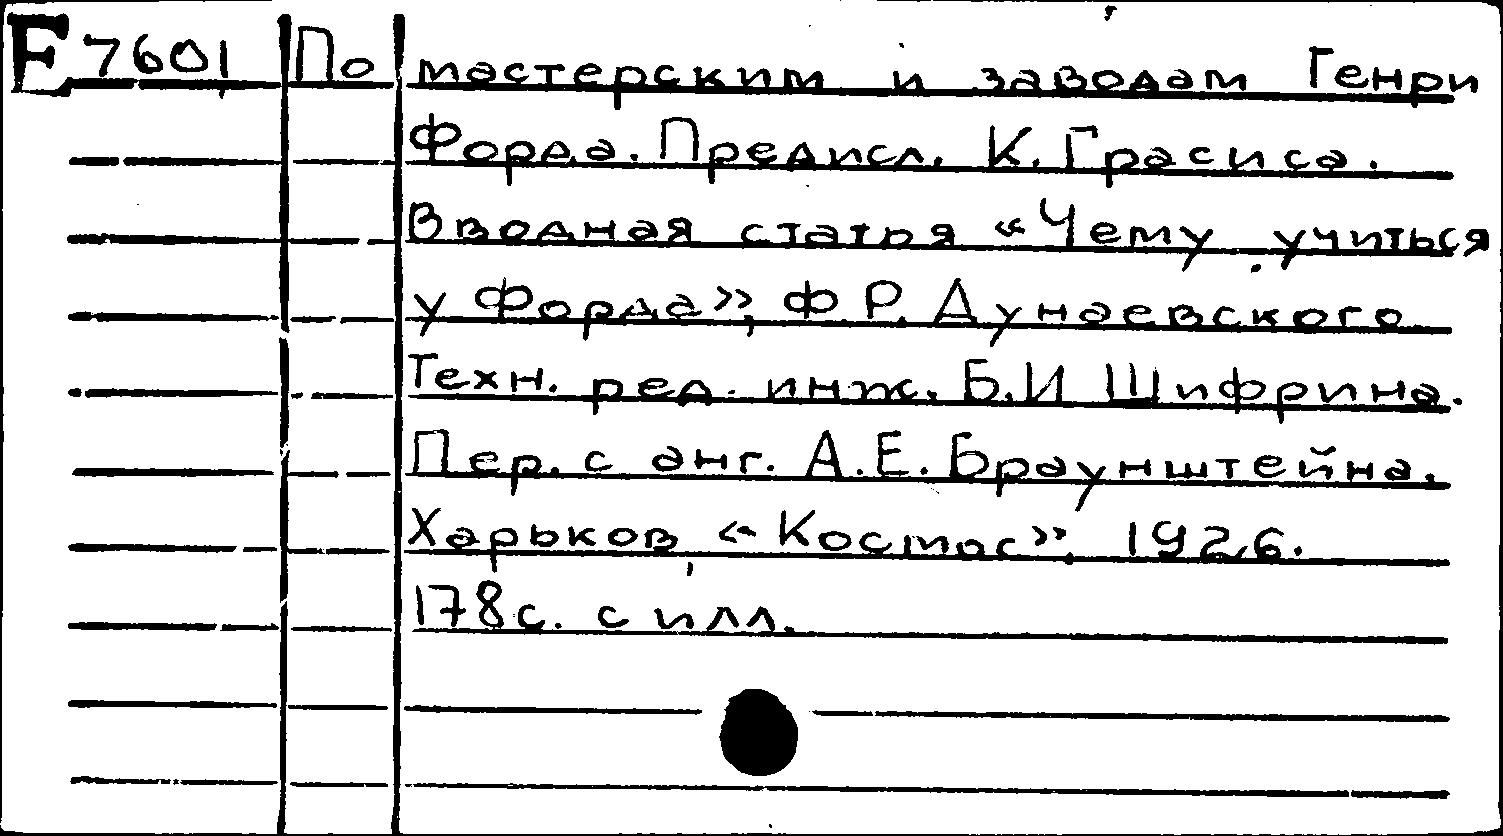 E 7601 По мастерским и заводам Генри
Форда. Предисл. К. Грасиса.
Вводная статья «Чему учиться
у Форда», Ф.Р. Дунаевского
Техн. ред. инж. Б.И Шифрина.
Пер. с анг. А.Е. Браунштейна.
Харьков, «Космос», 1926.
178с. с илл.